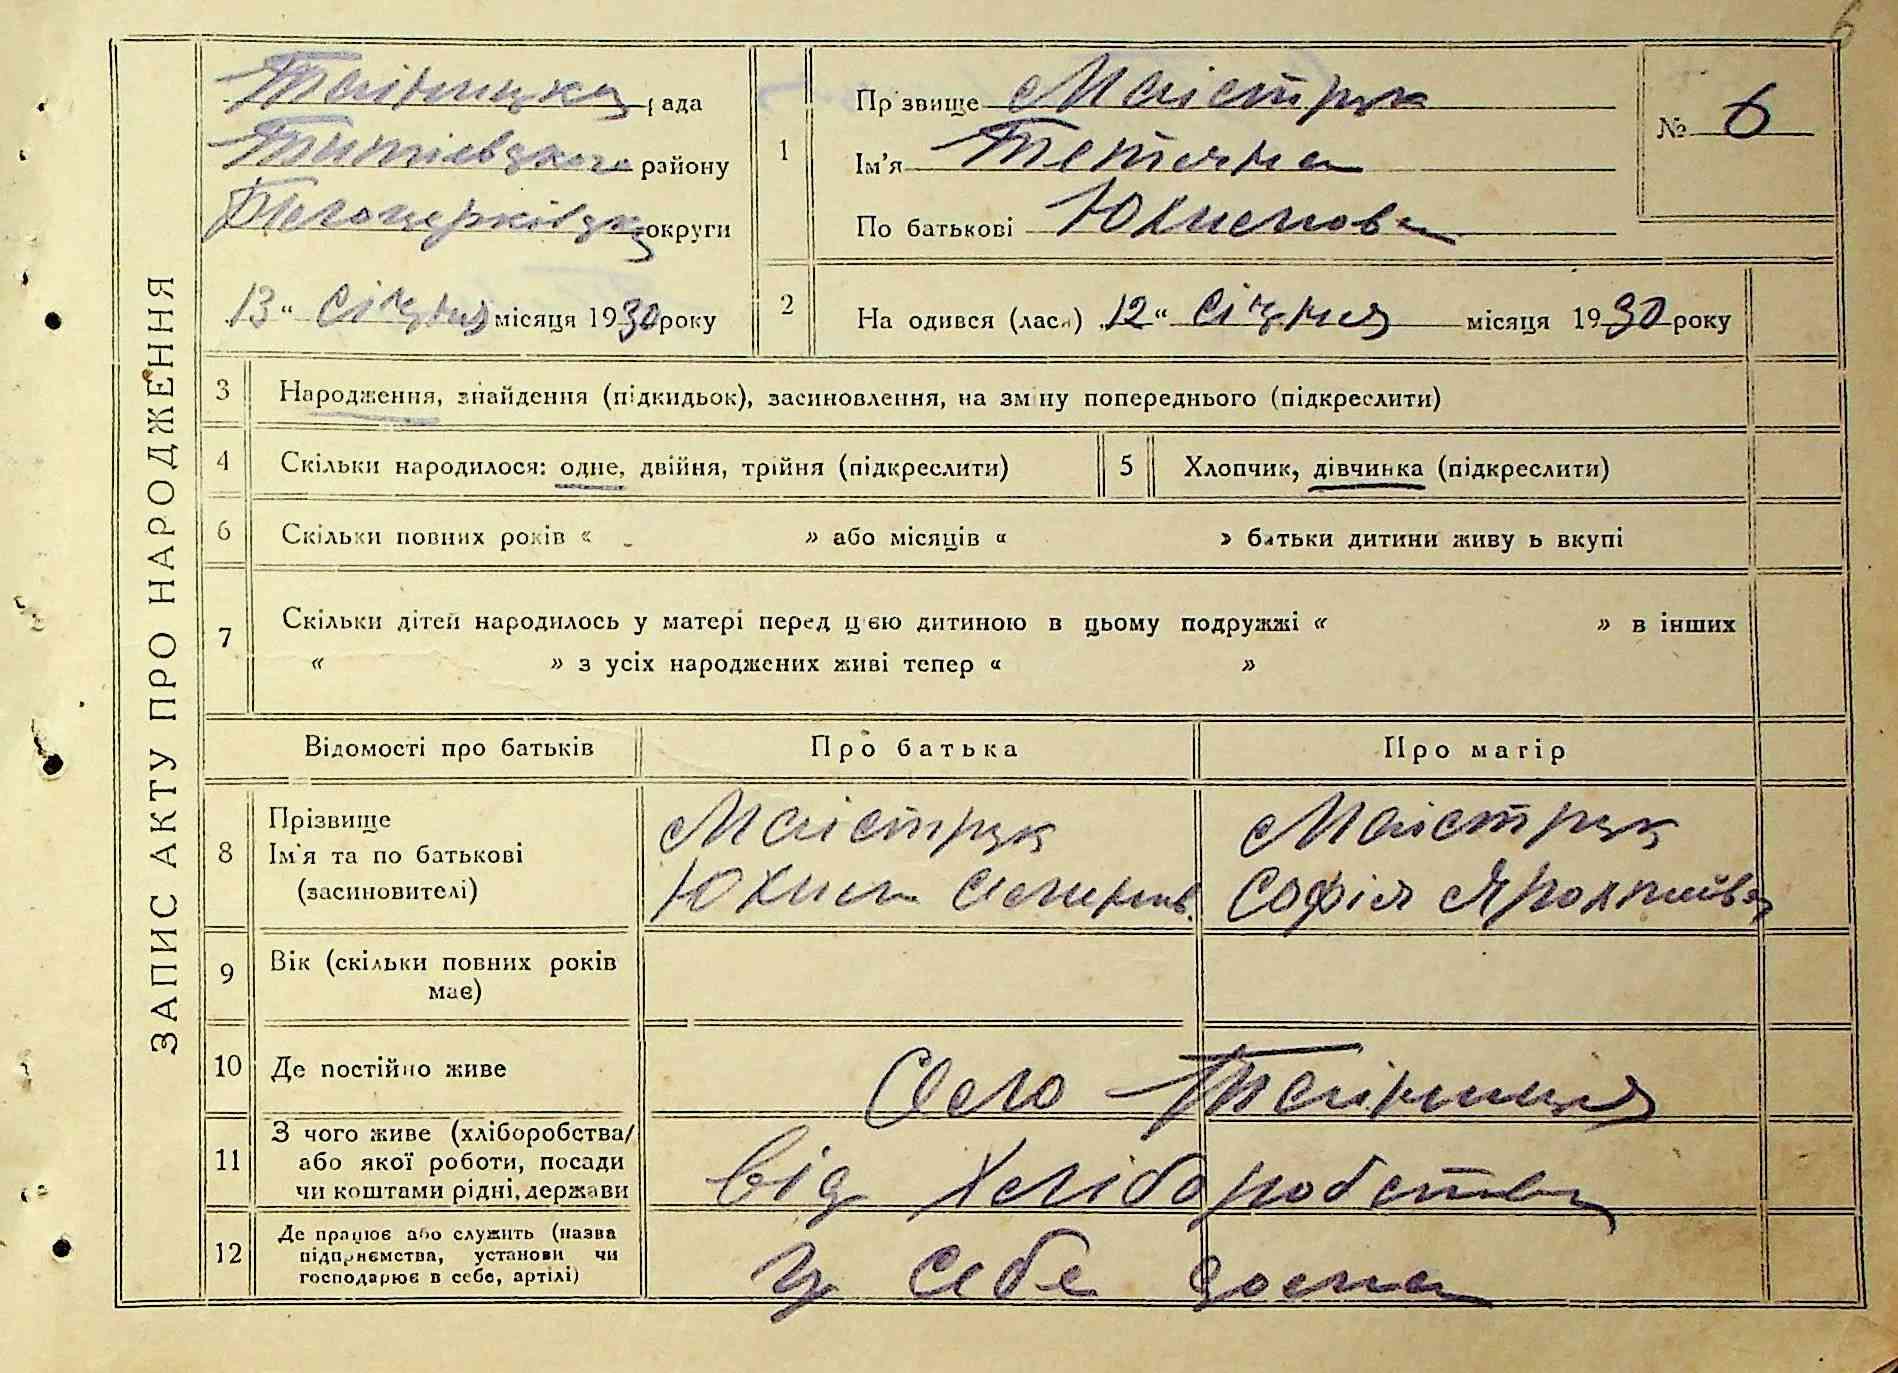 6
ЗАПИС АКТУ ПРО НАРОДЖЕННЯ
Тайницька рада
Тетіївського району
Білоцерківськ округи
13 " січня місяця 1930 року
1
Прізвище Майструк
Ім'я Тетяна
По батькові Юхимова
№ 6
2
Народився (лася) 12 " січня місяця 1930 року
3 Народження, знайдення (підкидьок), засиновлення, на зміну попереднього (підкреслити)
4 Скільки народилося: одне, двійня, трійня (підкреслити)
5 Хлопчик, дівчинка (підкреслити)
6 Скільки повних років « » або місяців « » батьки дитини живуть вкупі
7 Скільки дітей народилось у матері перед цією дитиною в цьому подружжі « » в інших
« » з усіх народжених живі тепер « »
Відомості про батьків Про батька Про матір
8
Прізвище
Ім'я та по батькові
(засиновителі)
Майструк
Юхим
Майструк
Софія
9 Вік (скільки повних років
має)
10 Де постійно живе
Село Тайниця
11 З чого живе (хліборобства/
або якої роботи, посади
чи коштами рідні, держави
від хліборобства
12 Де працює або служить (назва
підприємства, установи чи
господарює в себе, артілі)
у себе дома